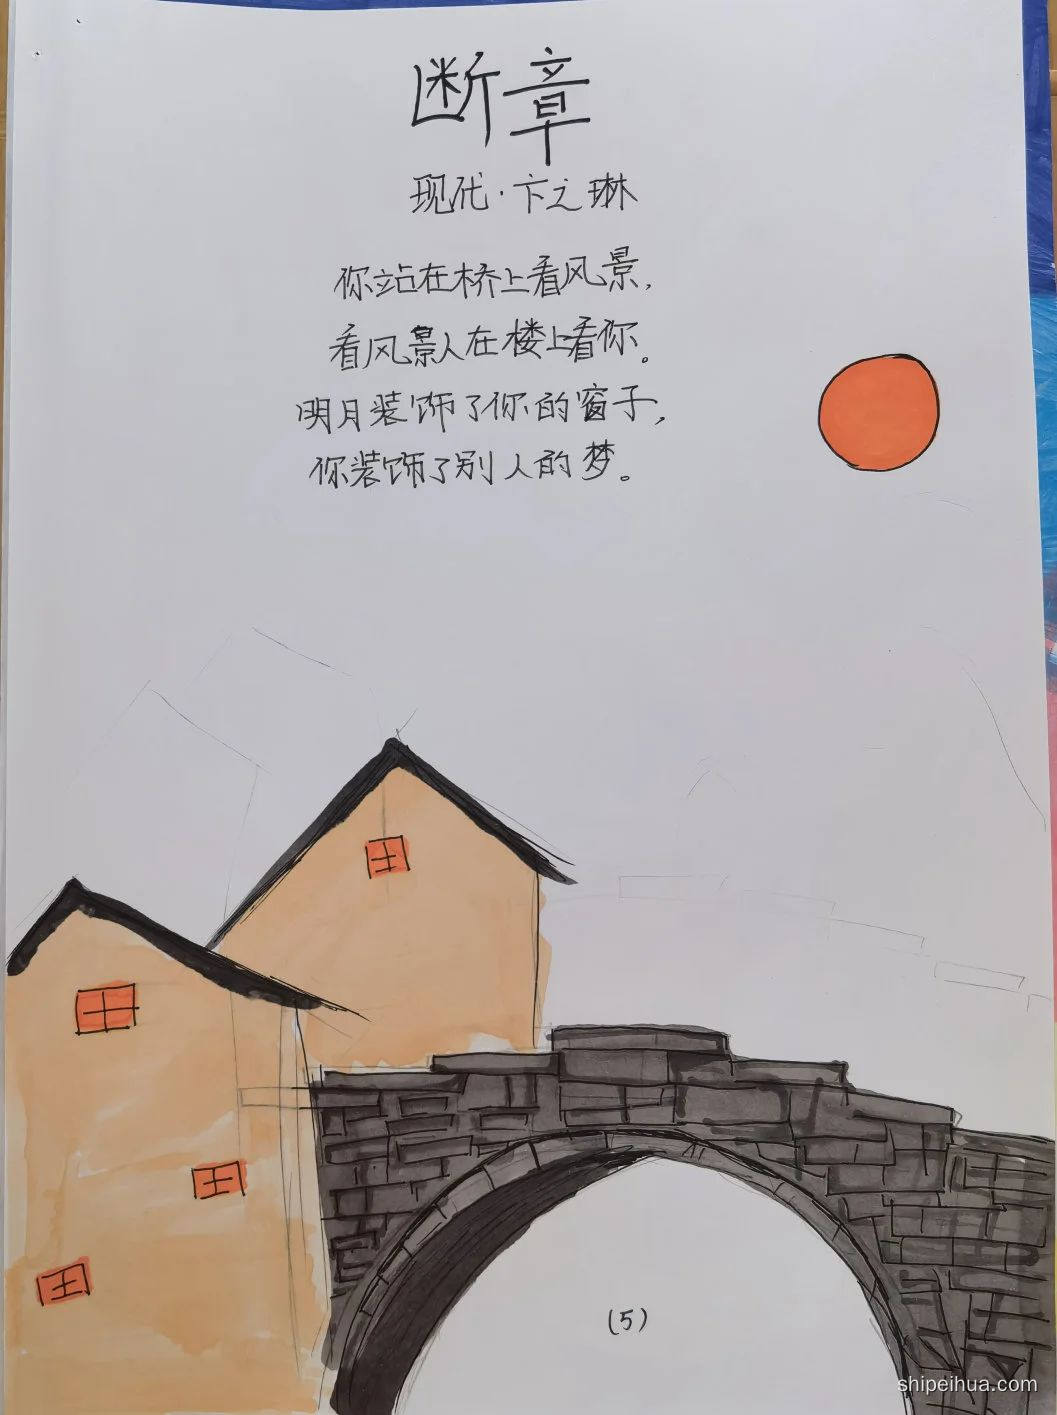 断章
现代·卞之琳
你站在桥上看风景,
看风景人在楼上看你。
明月装饰了你的窗子,
你装饰了别人的梦。
(5)
shipeihua.com